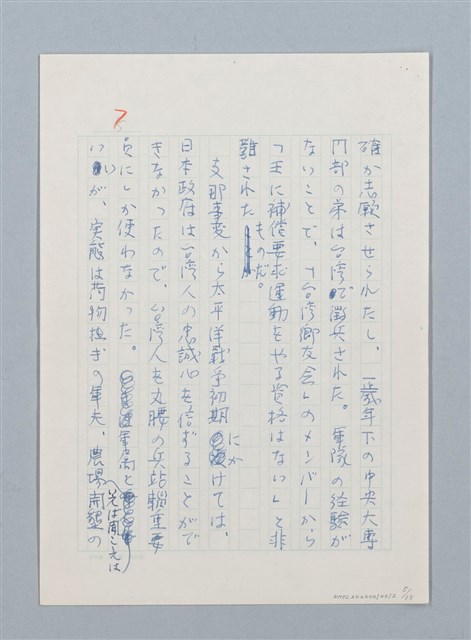 7
確か志願させられたし、一歳年下の中央大専
門部の弟は台湾で徴兵された。軍隊の経験が
ないことで、「台湾郷友会」のメンバーから
「王に補償要求運動をやる資格はない」と非
難されたものだ。
支那事変から太平洋戦争初期にかけては、
日本政府は台湾人の忠誠心を信ずることがで
きなかったので、台湾人を丸腰の兵站輜重要
員にしか使わなかった。軍属と
いいが、実態は荷物担ぎの軍夫、農場開墾の
(いえば聞こえは)
5/18